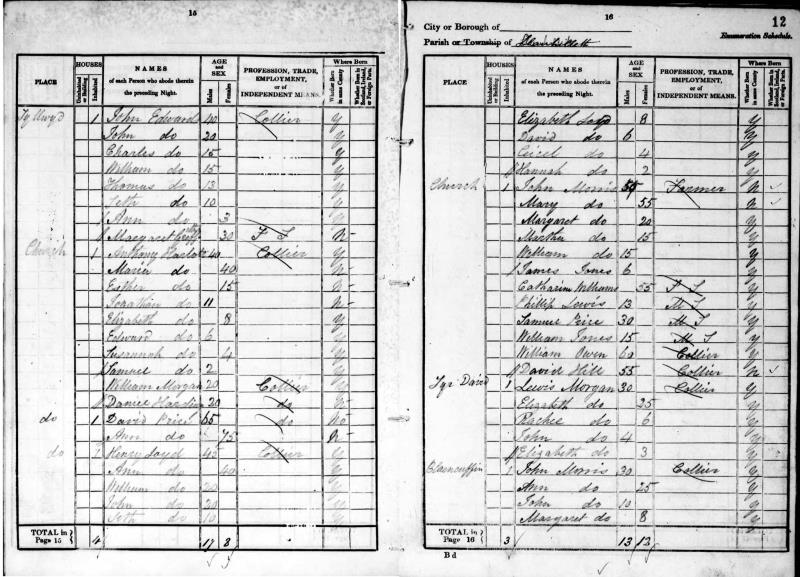 15
PLACE
HOUSES
Uninhabited or Building
Inhabited
NAMES of each Person who abode therein the preceding Night.
AGE and SEX
Males
Females
PROFESSION, TRADE, EMPLOYMENT, or of INDEPENDENT MEANS.
Where Born
Whether Born in same County
Whether Born in Scotland, Ireland, or Foreign Parts.
Ty llwyd 1 John Edwards 40 Collier Y
John do 20 Y
Charles do 15 Y
William do 15 Y
Thomas do 13 Y
Seth do 10 Y
Ann do 3 Y
Margaret 30 F S N
Church 1 Anthony 40 Collier Y
Maria do 40 N
Esther do 15 N
Jonathan do 11 N
Elizabeth do 8 Y
Edward do 6 Y
Susannah do 4 Y
Samuel do 2 Y
William Morgan 20 Collier Y
Daniel 20 do N
do 1 David Price 65 do No
Ann do 75 N
do 1 Henry Loyd 45 Collier Y
Ann do 40 Y
William do 20 Y
John do 20 Y
Seth do 10 Y
TOTAL in Page 15 4 17 8
16
12
City or Borough of
Enumeration Schedule.
Parish or Township of
PLACE
HOUSES
Uninhabited or Building
Inhabited
NAMES of each Person who abode therein the preceding Night.
AGE and SEX
Males
Females
PROFESSION, TRADE, EMPLOYMENT, or of INDEPENDENT MEANS.
Where Born
Whether Born in same County
Whether Born in Scotland, Ireland, or Foreign Parts.
Elizabeth Loyd 8 Y
David do 6 Y
Cicel do 4 Y
Hannah do 2 Y
Church 1 John Morris 55 Farmer N
Mary do 55 N
Margaret do 20 Y
Martha do 15 Y
William do 15 Y
James Jones 6 Y
Catharin Williams 55 F S Y
Phillip Lewis 13 M S Y
Samuel Price 30 M S Y
William Jones 15 M S Y
William Owen 60 Collier Y
David Hill 55 Collier N
Tyr David 1 Lewis Morgan 30 Collier Y
Elizabeth do 25 Y
Rachel do 6 Y
John do 4 Y
Elizabeth do 3 Y
Blaencuffin 1 John Morris 30 Collier Y
Ann do 25 Y
John do 10 Y
Margaret do 8 Y
TOTAL in Page 16 3 13 12
B d